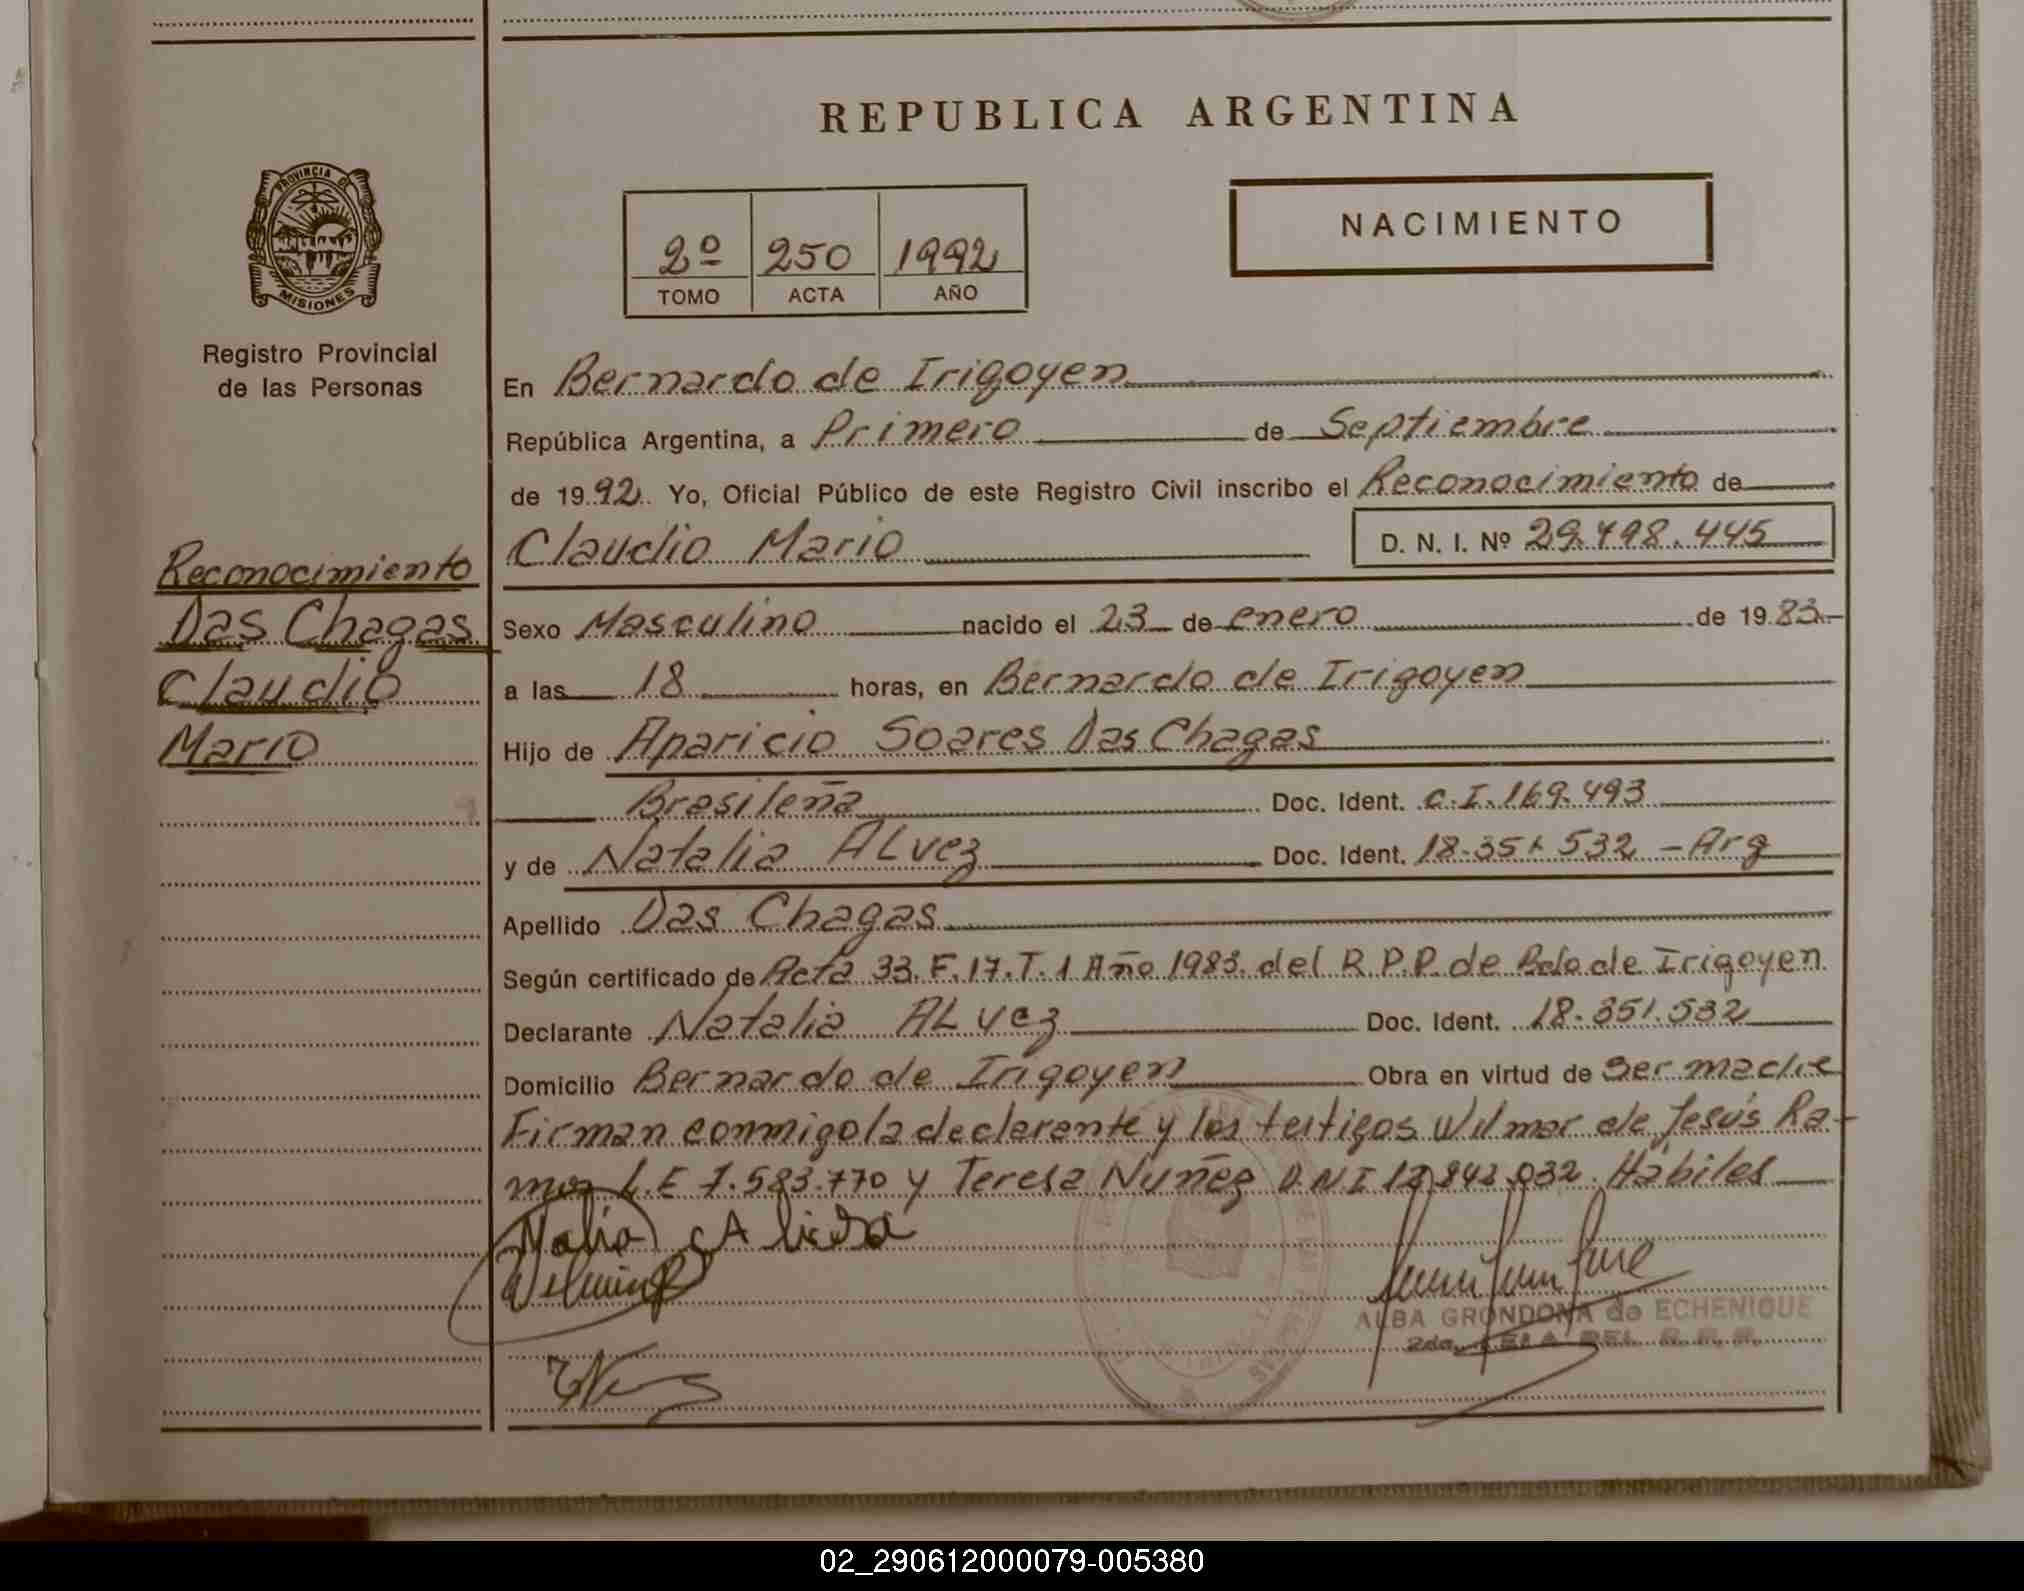 REPUBLICA ARGENTINA
PROVINCIA DE
MISIONES
Registro Provincial
de las Personas
2º 250 1992
TOMO ACTA AÑO
NACIMIENTO
Reconocimiento
Das Chagas
Claudio
Mario
En Bernardo de Irigoyen
República Argentina, a Primero de Septiembre
de 1992. Yo, Oficial Público de este Registro Civil inscribo el Reconocimiento de
Claudio Mario D. N. I. Nº 29.498.445
Sexo Masculino nacido el 23 de enero de 1983
a las 18 horas, en Bernardo de Irigoyen
Hijo de Aparicio Soares Das Chagas
Brasileña Doc. Ident. C.I. 169.493
y de Natalia ALvez Doc. Ident. 18.351.532 - Arg
Apellido Das Chagas
Según certificado de Acta 33. F. 17. T. 1 Año 1983. del R.P.P. de Bdo de Irigoyen
Declarante Natalia ALvez Doc. Ident. 18.351.532
Domicilio Bernardo de Irigoyen Obra en virtud de Ser madre
Firman conmigo la declarante y los testigos Wilmar de Jesús Ra-
mos L.E 7.583.770 y Teresa Nuñez D.N.I 12.842.032. Hábiles
ALBA GRONDONA de ECHENIQUE
2da. DEL R. P. P.
02_290612000079-005380